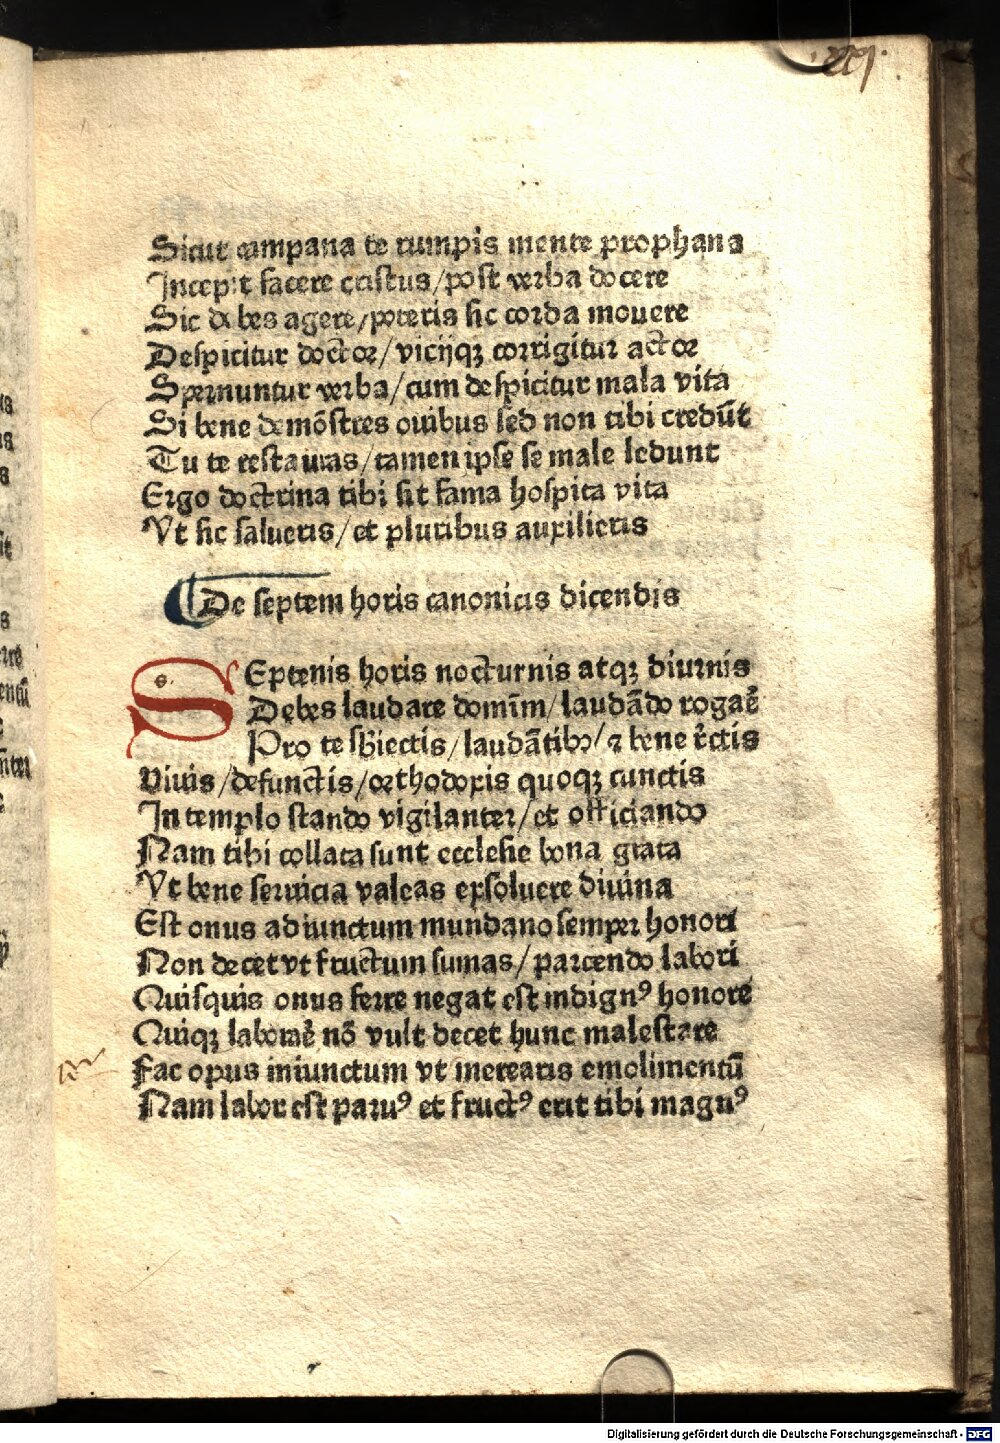 Sicut campana te rumpis mente prophana
Incepit facere cristus/post verba docere
Sic debes agere/poteris sic corda mouere
Despicitur doctor/vicijqꝫ corrigitur actor
Spernuntur verba/cum despicitur mala vita
Si bene demōstres ouibus sed non tibi credūt
Tu te restauras/tamen ipse se male ledunt
Ergo doctrina tibi sit fama hospita vita
Vt sic salueris/et pluribus auxilieris
De septem horis canonicis dicendis
SEptenis horis nocturnis atqꝫ diurnis
Debes laudare domīm/laudādo rogaē
Pro te sbiectis/laudātibꝰ/⁊ bene rc̄tis
Viuis/defunctis/orthodoxis quoqꝫ cunctis
In templo stando vigilanter/et officiando
Nam tibi collata sunt ecclesie bona grata
Vt bene seruicia valeas exsoluere diuina
Est onus adiunctum mundano semper honori
Non decet vt fructum sumas/parcendo labori
Quisquis onus ferre negat est indignꝰ honore
Quiqꝫ laboraē nō vult decet hunc malestare
Fac opus iniunctum vt merearis emolimentū
Nam labor est paruꝰ et fructꝰ erit tibi magnꝰ
Digitalisierung gefördert durch die Deutsche Forschungsgemeinschaft - DFG